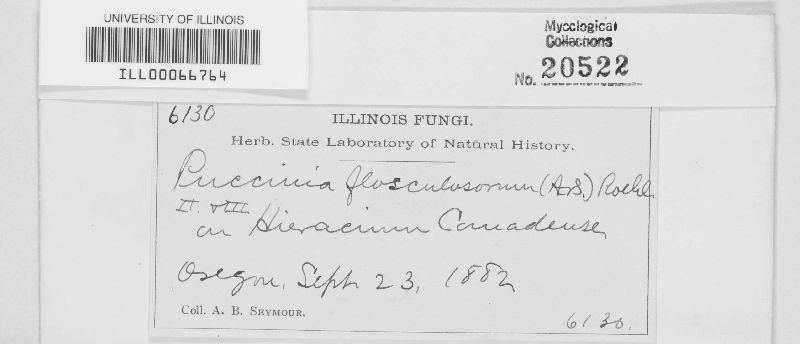 UNIVERSITY OF ILLINOIS
ILL00066764
Mycological
Collections
No. 20522
6130
ILLINOIS FUNGI.
Herb. State Laboratory of Natural History.
Puccinia flosculosorum (A&S.) Roehl
II. & III
on Hieracium Canadense
Oregon, Sept 23, 1882
Coll. A. B. SEYMOUR.
6130.